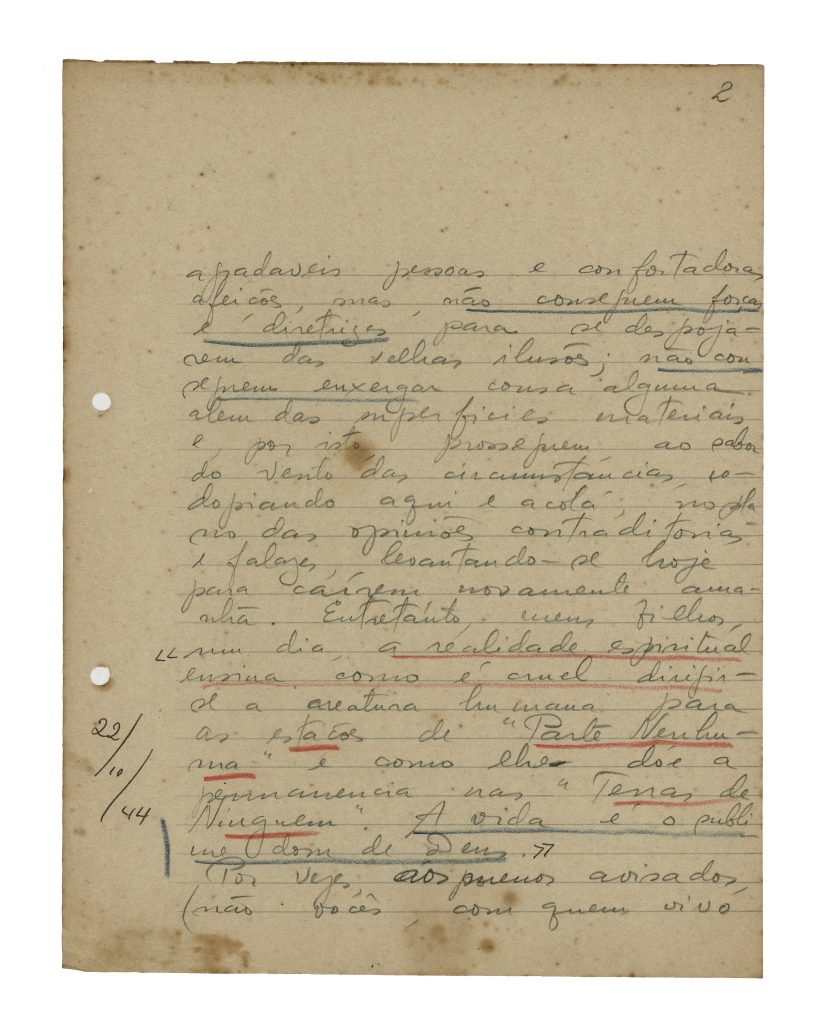 2
agradaveis pessoas e confortadoras
afeicões, mas, não conseguem forças
e diretrizes para se despoja-
rem das velhas ilusões; não con
seguem enxergar cousa alguma
alem das superficies materiais
e, por isto, prosseguem ao sabor
do vento das circumstancias, ro-
dopiando aqui e acolá, no pla
no das opiniões contraditorias
e falazes, levantando-se hoje
para caírem novamente ama-
nhã. Entretanto, meus filhos,
“um dia, a realidade espiritual
ensina como é cruel dirigir-
se a creatura humana para
as estacões de “Parte Nenhu-
22/10/44
ma” e como lhe dóe a
permanencia nas “Terras de
Ninguem”. A vida é o subli
me dom de Deus.”
Por vezes, aos menos avisados,
(não vocês, com quem vivo